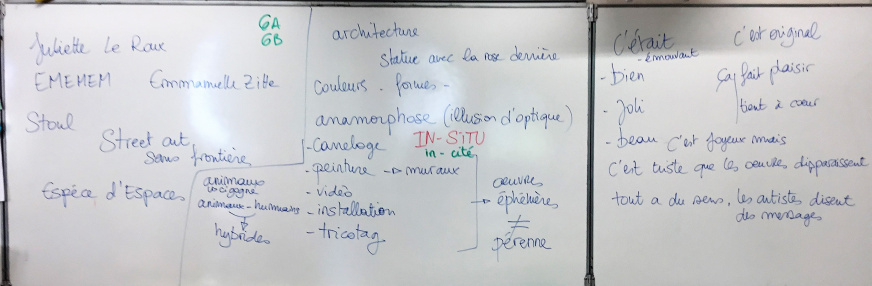 6A
6B
Juliette Le Roux
EMEMEM Emmanuelle Zitte
Stoul
Street art
sans frontière
Espèce d'Espaces
animaux
cigogne
animaux-humains
hybrides
architecture
statue avec la rose derrière
couleurs - formes -
anamorphose (illusion d'optique)
IN-SITU
in-cité
- Cameloge
- peinture → muraux
- vidéo
- installation
- tricotag
oeuvres
éphémères
≠
pérenne
C'était
émouvant
- bien
- Joli
- beau
c'est original
Ça fait plaisir
tient à coeur
c'est joyeux mais
C'est triste que les oeuvres disparaissent
tout a du sens, les artistes disent
des messages